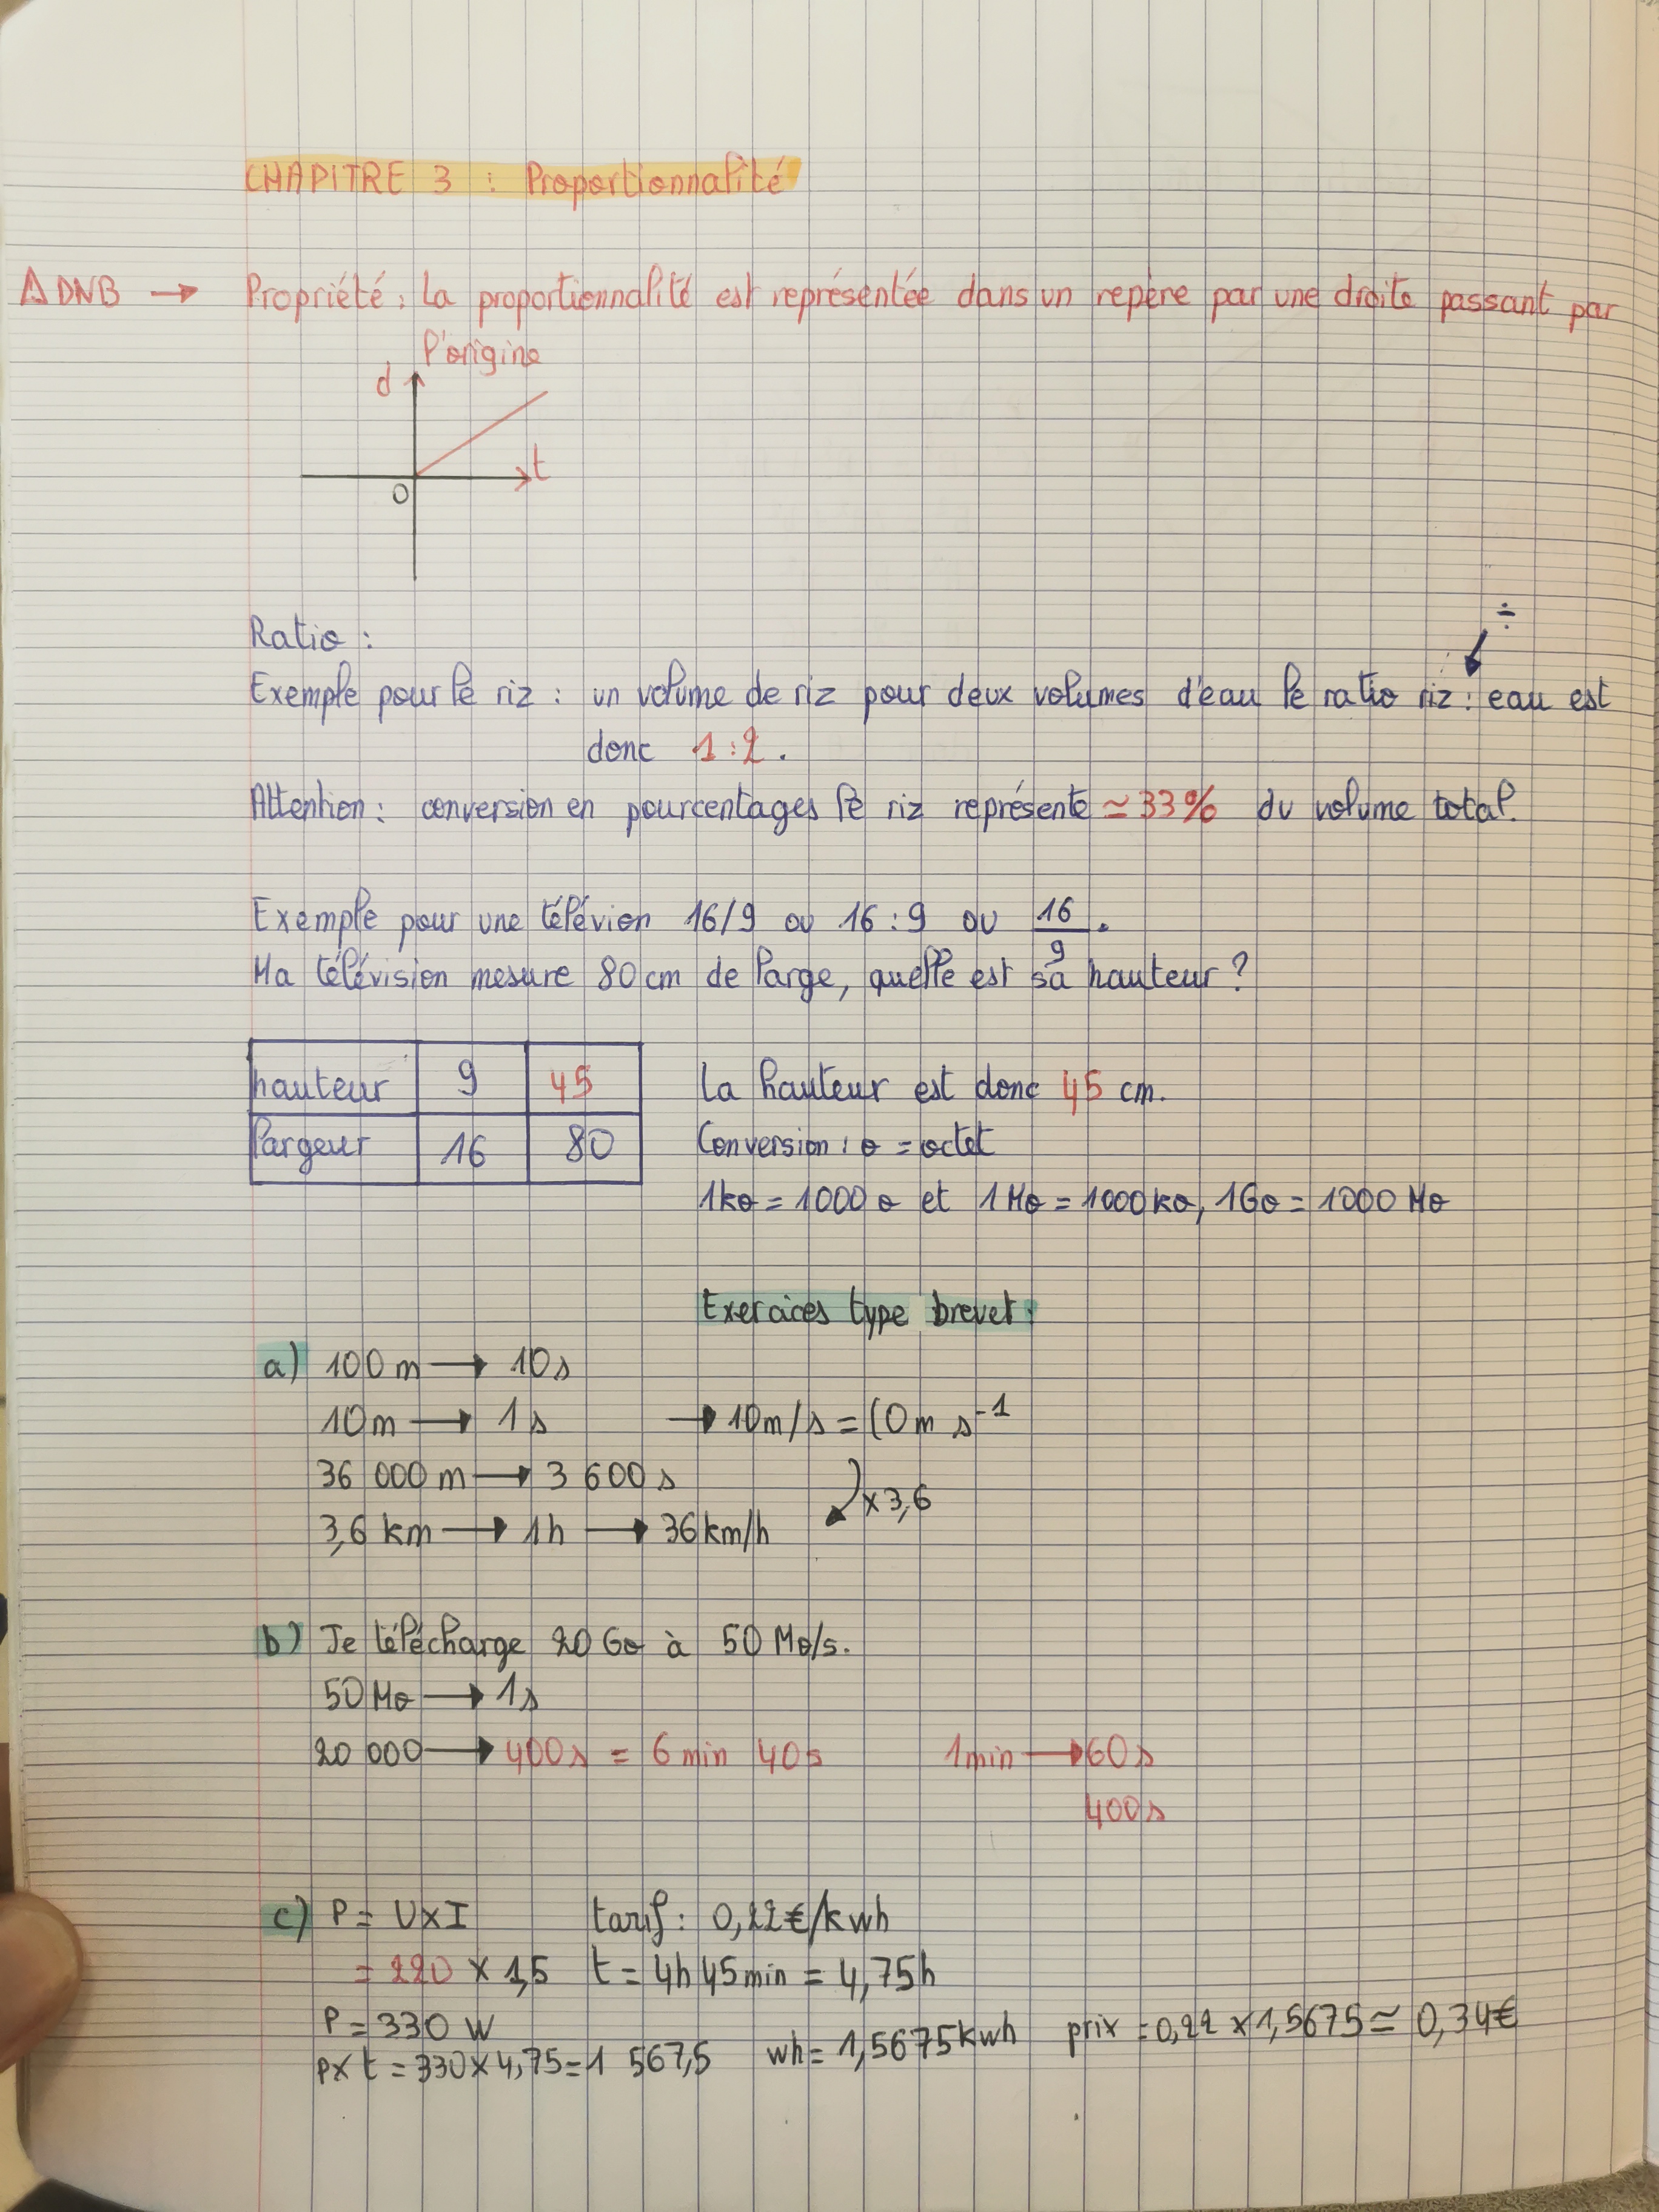 CHAPITRE 3 : Proportionnalité
⚠ DNB → Propriété : La proportionnalité est représentée dans un repère par une droite passant par
l'origine
d
t
0
÷
Ratio :
Exemple pour le riz : un volume de riz pour deux volumes d'eau le ratio riz : eau est
donc 1 : 2.
Attention : conversion en pourcentages le riz représente ≃ 33% du volume total.
Exemple pour une télévion 16/9 ou 16 : 9 ou 16/9.
Ma télévision mesure 80 cm de large, quelle est sa hauteur ?
hauteur 9 45
largeur 16 80
La hauteur est donc 45 cm.
Conversion : o = octet
1ko = 1000 o et 1 Mo = 1000 ko, 1Go = 1000 Mo
Exercices type brevet :
a) 100 m → 10 s
10 m → 1 s → 10 m/s = 10 m s⁻¹
36 000 m → 3 600 s
x 3,6
3,6 km → 1h → 36 km/h
b) Je télécharge 20 Go à 50 Mo/s.
50 Mo → 1s
20 000 → 400s = 6 min 40s 1min → 60s
400s
c) P = U x I tarif : 0,22€/kwh
= 220 x 1,5 t = 4h 45min = 4,75h
P = 330 W
P x t = 330 x 4,75 = 1 567,5 wh = 1,5675 kwh prix = 0,22 x 1,5675 ≃ 0,34€